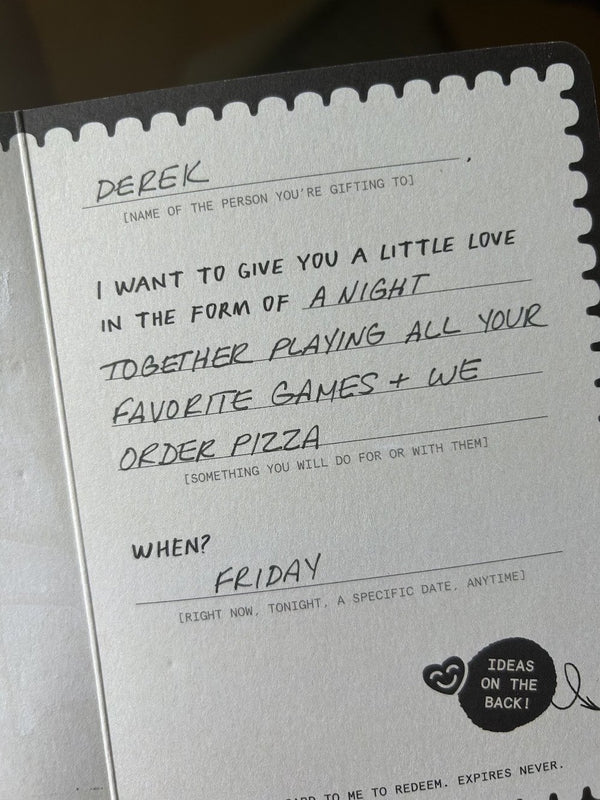 DEREK
[NAME OF THE PERSON YOU'RE GIFTING TO]
I WANT TO GIVE YOU A LITTLE LOVE
IN THE FORM OF A NIGHT
TOGETHER PLAYING ALL YOUR
FAVORITE GAMES + WE
ORDER PIZZA
[SOMETHING YOU WILL DO FOR OR WITH THEM]
WHEN?
FRIDAY
[RIGHT NOW, TONIGHT, A SPECIFIC DATE, ANYTIME]
IDEAS
ON THE
BACK!
TO ME TO REDEEM. EXPIRES NEVER.